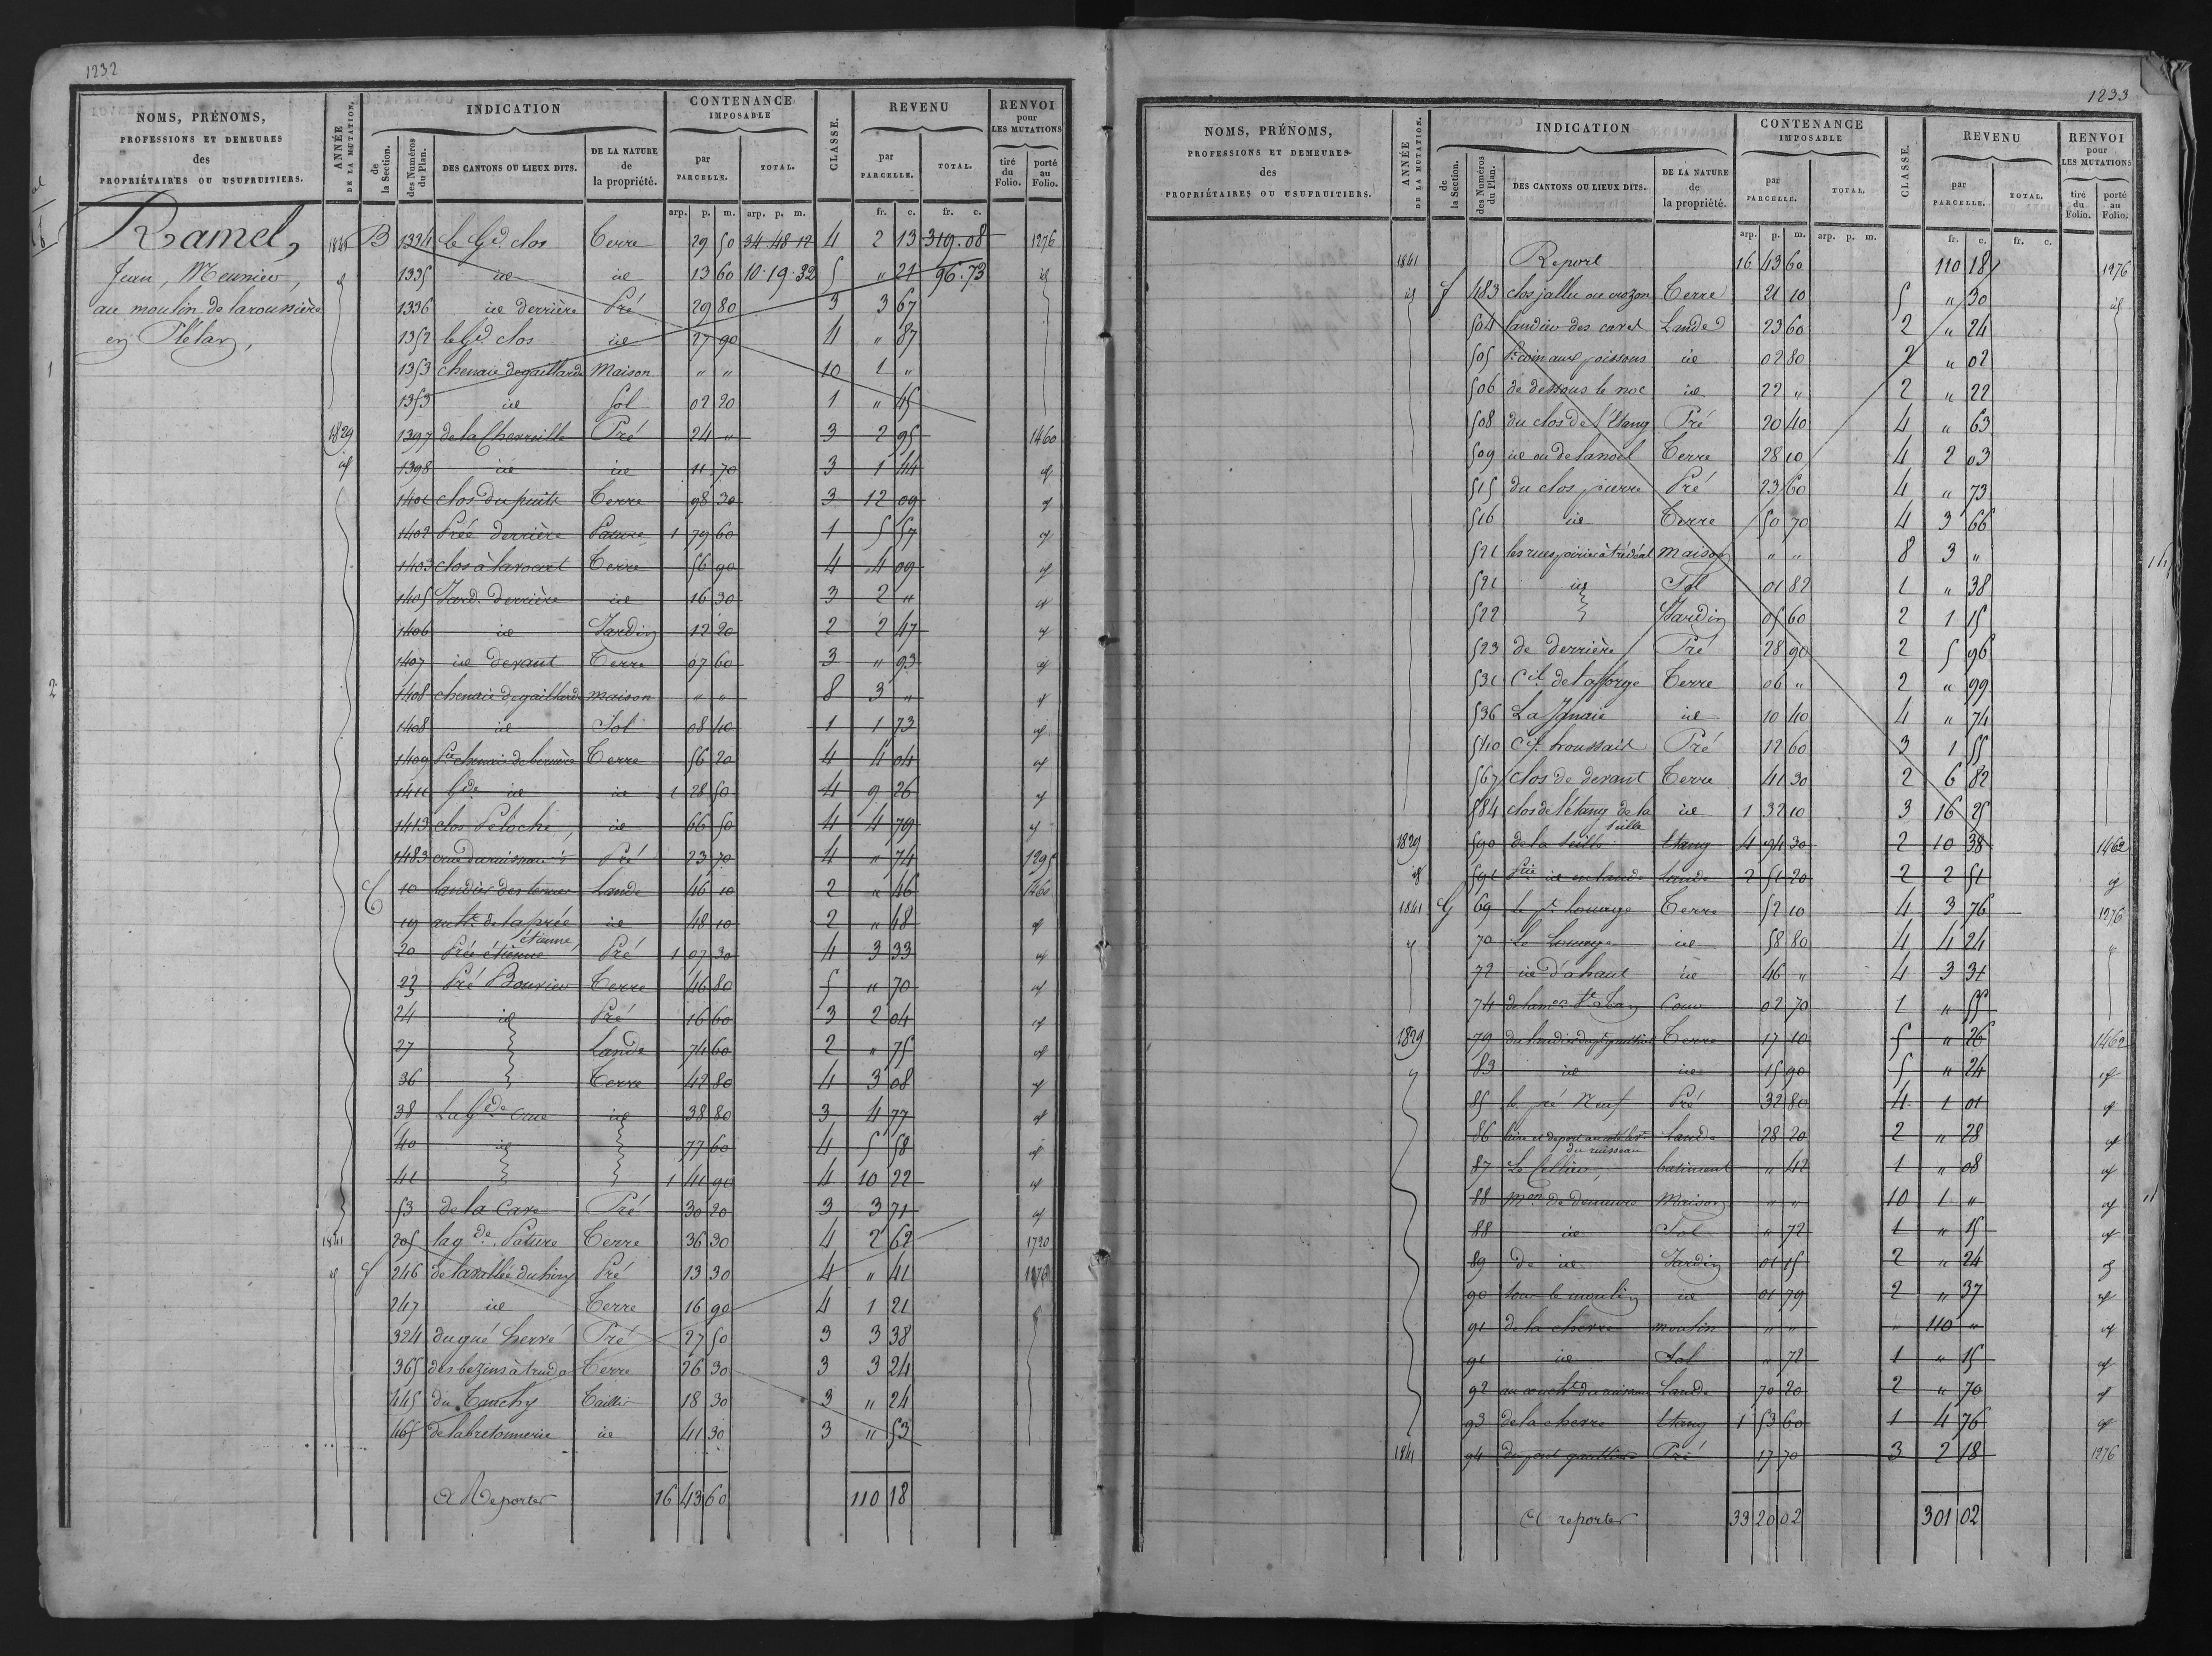 1232
NOMS, PRÉNOMS, PROFESSIONS ET DEMEURES des PROPRIÉTAIRES OU USUFRUITIERS.
ANNÉE DE LA MUTATION.
INDICATION
de la Section.
des Numéros du Plan.
DES CANTONS OU LIEUX DITS.
DE LA NATURE de la propriété.
CONTENANCE IMPOSABLE
par PARCELLE.
TOTAL.
CLASSE.
REVENU
par PARCELLE.
TOTAL.
RENVOI pour LES MUTATIONS
tiré du Folio.
porté au Folio.
arp. p. m. arp. p. m. fr. c. fr. c.
Ramel,
Jean, Meunier,
au moulin de laroussière
en Plélan,
1841 B 1334 le Gd clos Terre 29 50 34.48.12 4 2 13 319.08 1276
id 1335 id id 13 60 10.19.32 5 " 21 96.73 id
1336 id derrière Pré 29 80 3 3 67
1352 le Gd clos id 27 90 4 " 87
1353 chenaie de gaillarde Maison " " 10 1 "
1353 id Sol 02 20 1 " 45
1829 1397 de la Pré 24 " 3 2 95 1460
id 1398 id id 11 70 3 1 44 id
1401 clos du puits Terre 98 30 3 12 09 id
1402 Prée derrière Pature 1 79 60 1 5 57 id
1403 clos à Terre 56 90 4 4 09 id
1405 Jard. derrière id 16 30 3 2 " id
1406 id Jardin 12 20 2 2 47 id
1407 id devant Terre 07 60 3 " 93 id
1408 chenaie de gaillarde maison " " 8 3 " id
1408 id Sol 08 40 1 1 73 id
1409 Pte Terre 56 20 4 4 04 id
1411 Gde id id 1 28 50 4 9 26 id
1413 clos Peloche id 66 50 4 4 79 id
1483 Pré 23 70 4 " 74 1295
C 10 landier des Lande 46 10 2 " 46 1460
19 au ht de la prée id 48 10 2 " 48 id
étienne
20 Prée étienne Pré 1 07 30 4 3 33 id
23 Pré Bouvier Terre 46 80 5 " 70 id
24 id Pré 16 60 3 2 04 id
27 Lande 74 60 2 " 75 id
36 Terre 42 80 4 3 08 id
38 La Gde id 38 80 3 4 77 id
40 id 77 60 4 5 58 id
41 1 41 90 4 10 22 id
53 de la Cave Pré 30 20 3 3 71 id
1841 205 la gde Pature Terre 36 30 4 2 62 1720
id F 246 de la vallée du Pré 13 30 4 " 41 1276
247 id Terre 16 90 4 1 21
324 du gué hervé Pré 27 50 3 3 38
365 des bezins à Terre 26 30 3 3 24
445 du Taillis 18 30 3 " 24
465 de la bretonnerie id 41 30 3 " 53
A Reporter 16 43 60 110 18
1233
NOMS, PRÉNOMS, PROFESSIONS ET DEMEURES des PROPRIÉTAIRES OU USUFRUITIERS.
ANNÉE DE LA MUTATION.
INDICATION
de la Section.
des Numéros du Plan.
DES CANTONS OU LIEUX DITS.
DE LA NATURE de la propriété.
CONTENANCE IMPOSABLE
par PARCELLE.
TOTAL.
CLASSE.
REVENU
par PARCELLE.
TOTAL.
RENVOI pour LES MUTATIONS
tiré du Folio.
porté au Folio.
arp. p. m. arp. p. m. fr. c. fr. c.
1841 Report 16 43 60 110 18 1276
id F 483 clos jallu ou crozon Terre 21 10 5 " 30 id
504 landier des Lande 23 60 2 " 24
505 Pt coin aux poissons id 02 80 2 " 02
506 de dessous le noc id 22 " 2 " 22
508 du clos de l'Etang Pré 20 40 4 " 63
509 id ou de lanoel Terre 28 10 4 2 03
515 du clos pierre Pré 23 60 4 " 73
516 id Terre 50 70 4 3 66
521 les rues à trédéal Maison " " 8 3 "
521 id Sol 01 82 1 " 38
522 Jardin 05 60 2 1 15
523 de derrière Pré 28 90 2 5 96
531 Cil de la forge Terre 06 " 2 " 99
536 La Janaie id 10 40 4 " 74
540 Cil houssait Pré 12 60 3 1 55
567 clos de devant Terre 41 30 2 6 82
584 clos de l'étang de la id 1 32 10 3 16 25
1829 590 de la Etang 4 94 30 2 10 38 1462
id 591 Ptie id en lande Lande 2 51 20 2 2 51 id
1841 G 69 le pt Louage Terre 52 10 4 3 76 1276
id 70 Le Louage id 58 80 4 4 24 id
72 id d'à haut id 46 " 4 3 31
74 Cour 02 70 1 " 55
1829 79 du landier du Terre 17 10 5 " 26 1462
id 83 id id 15 90 5 " 24 id
85 le pré Neuf Pré 32 80 4 1 01 id
86 Lande 28 20 2 " 28 id
du ruisseau
87 Le Cellier batiment " 42 1 " 08 id
88 Mon de demeure Maison " " 10 1 " id
88 id Sol " 72 1 " 15 id
89 de id Jardin 01 15 2 " 24 id
90 sous le moulin id 01 79 2 " 37 id
91 de la cherre moulin " " " 110 " id
91 id Sol " 72 1 " 15 id
92 Lande 70 20 2 " 70 id
93 de la cherre Etang 1 53 60 1 4 76 id
1841 94 du pont Pré 17 70 3 2 18 1276
A reporter 33 20 02 301 02